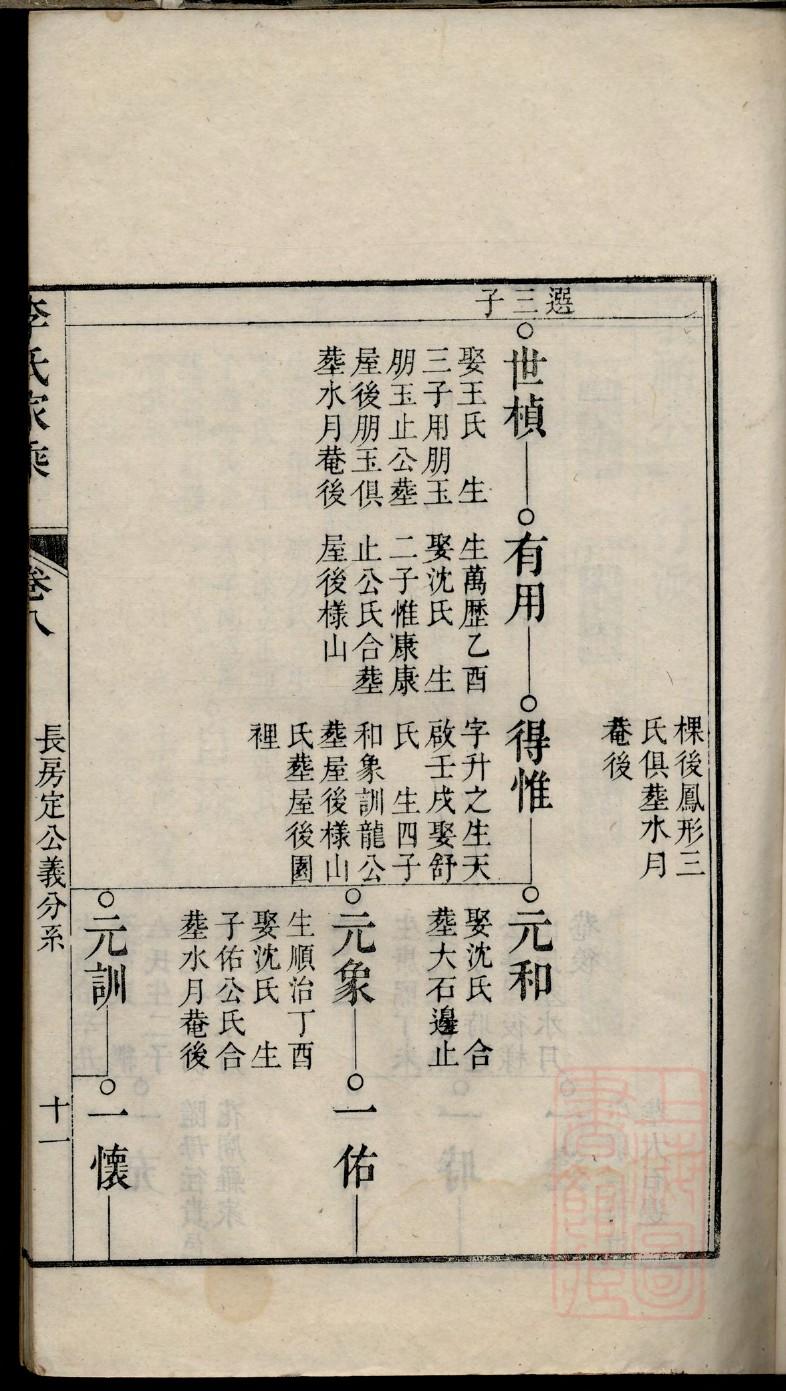 選三子
棵後鳳形三
氏俱塟水月
菴後
世楨
娶王氏 生
三子用朋玉
朋玉止公塟
屋後朋玉俱
塟水月菴後
有用
生萬歷乙酉
娶沈氏 生
二子惟康康
止公氏合塟
屋後樣山
得惟
字升之生天
啟壬戌娶舒
氏 生四子
和象訓龍公
塟屋後樣山
氏塟屋後園
裡
元和
娶沈氏 合
塟大石邊止
元象
生順治丁酉
娶沈氏 生
子佑公氏合
塟水月菴後
一佑
元訓
一懷
李氏家乘
卷八
長房定公義分系
十一
上海圖書館藏